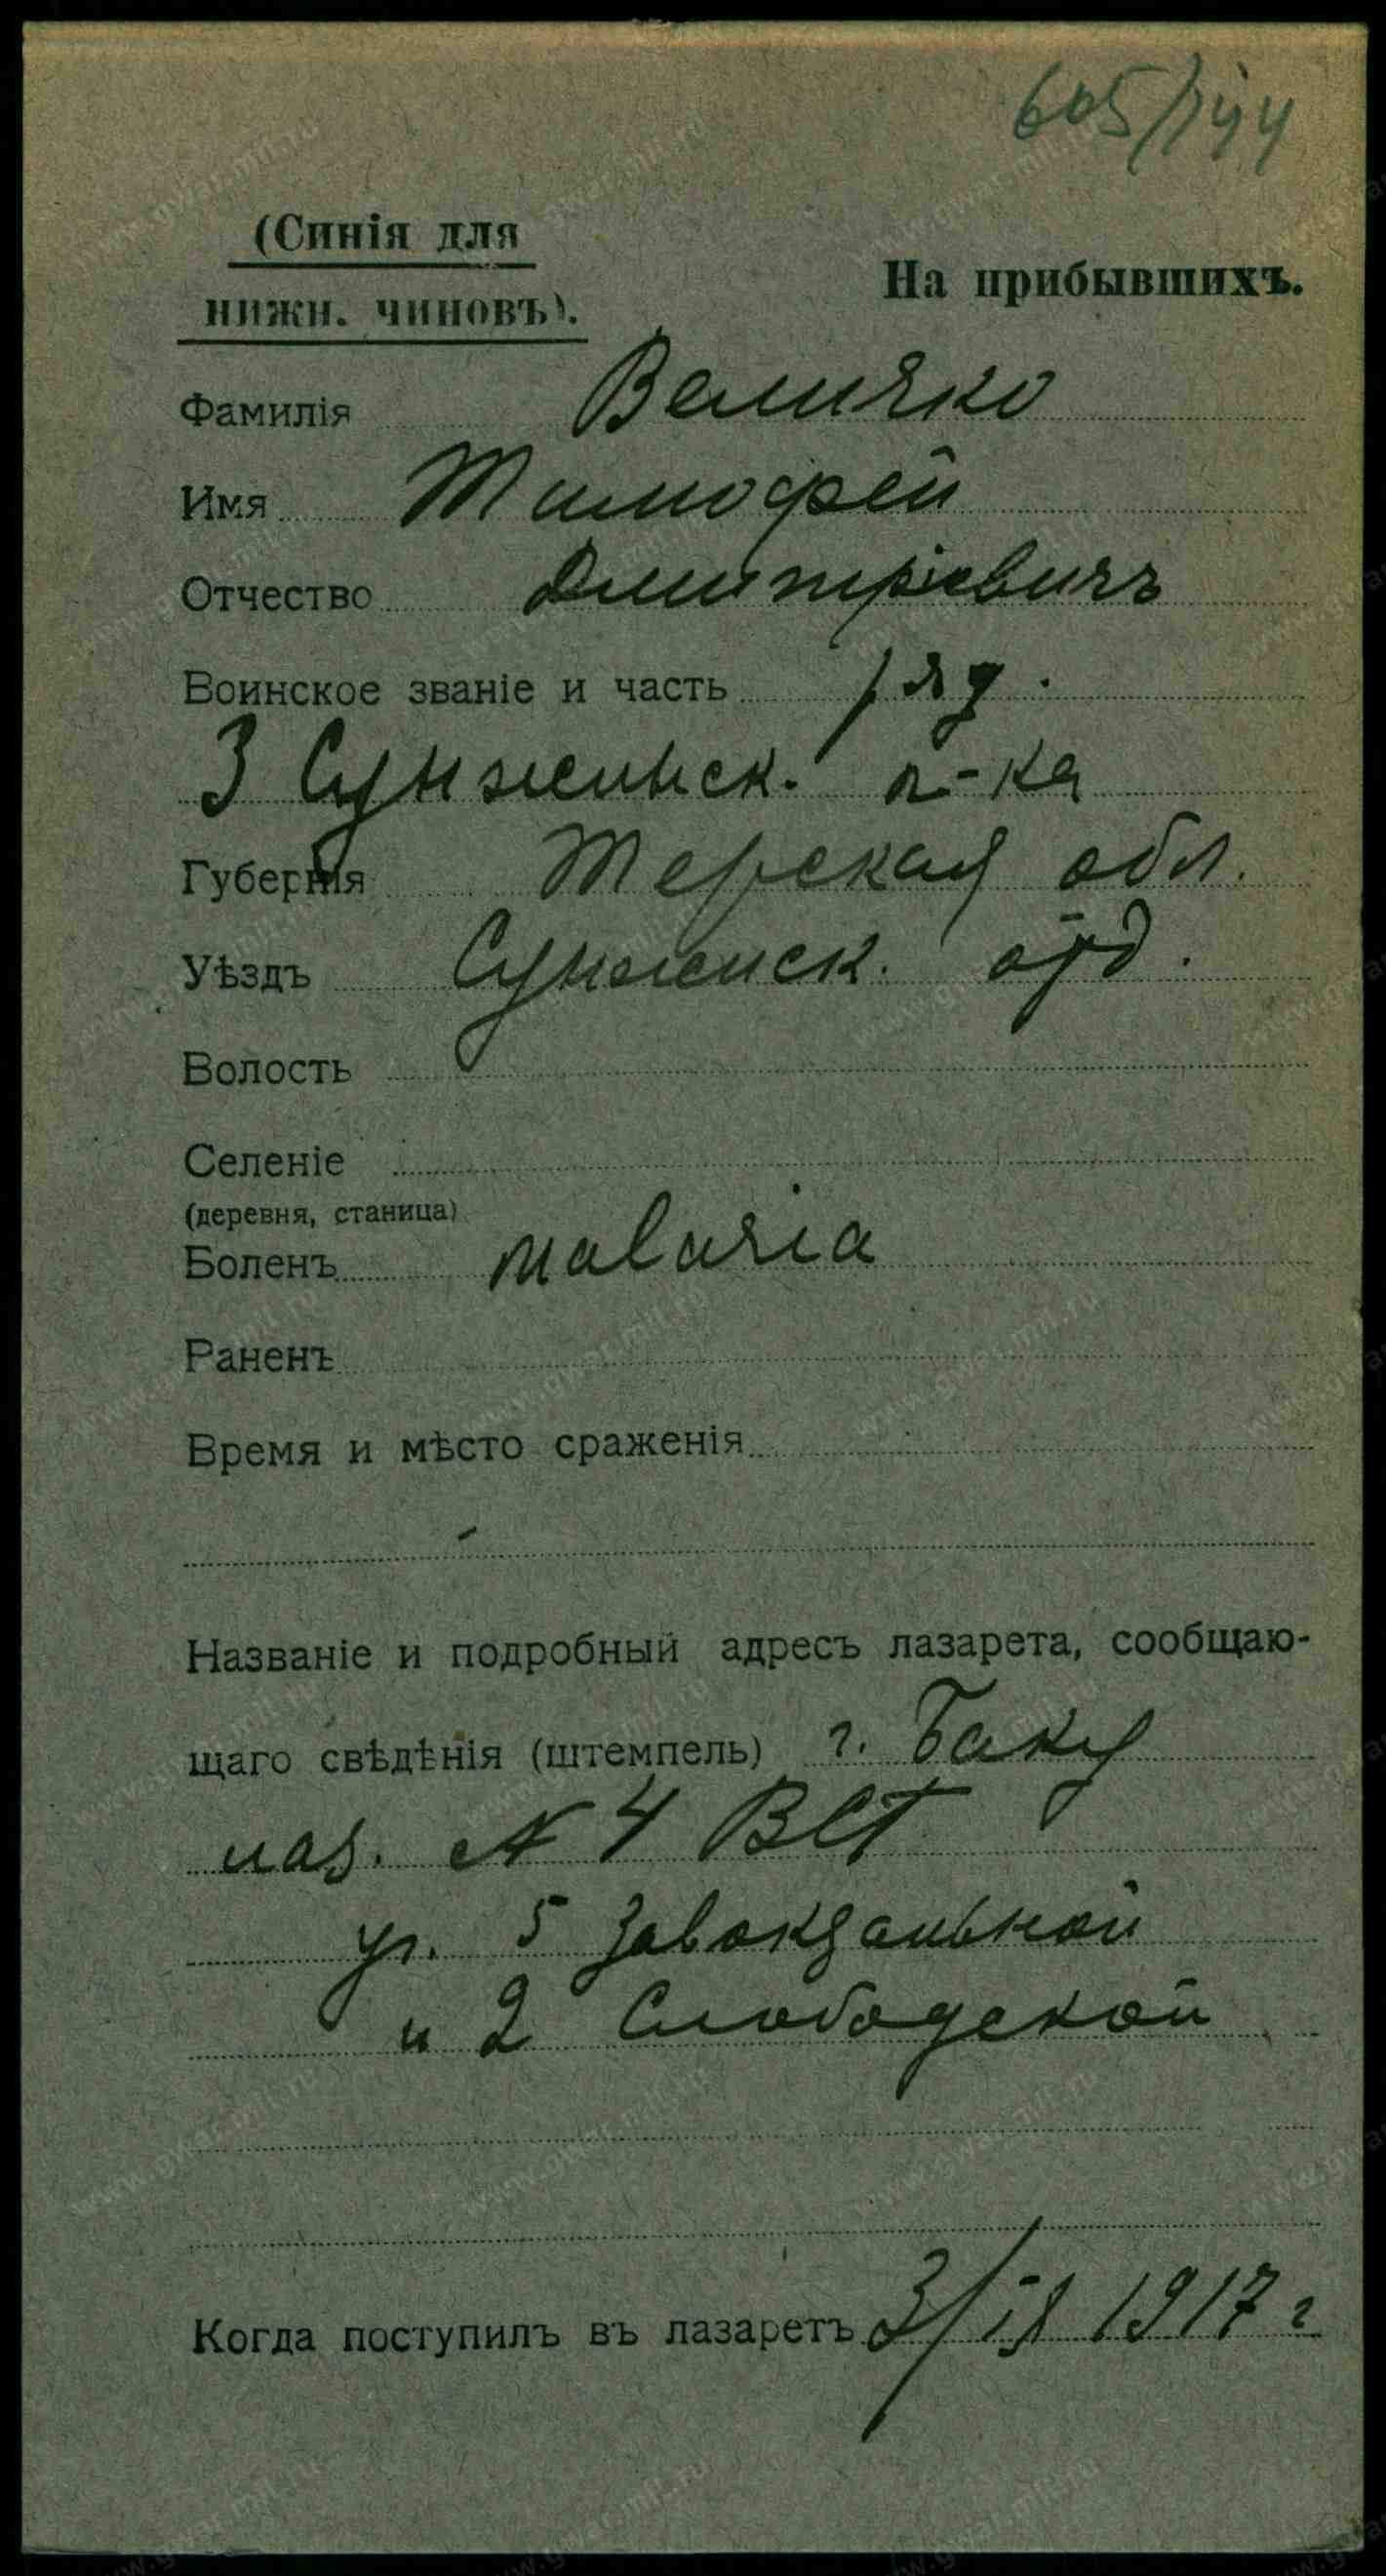 605/744
(Синія для
нижн. чиновъ).
На прибывшихъ.
Фамилія Величко
Имя Тимофей
Отчество Дмитріевичъ
Воинское званіе и часть ряд.
3 Сунженск. п-ка
Губернія Терская обл.
Уѣздъ Сунженск. отд.
Волость
Селеніе
(деревня, станица)
Боленъ malaria
Раненъ
Время и мѣсто сраженія
Названіе и подробный адресъ лазарета, сообщаю-
щаго свѣдѣнія (штемпель) г. Баку
лаз. № 4 ВСГ
уг. 5 Завокзальной
и 2 Слободской
Когда поступилъ въ лазаретъ 3/IX 1917 г